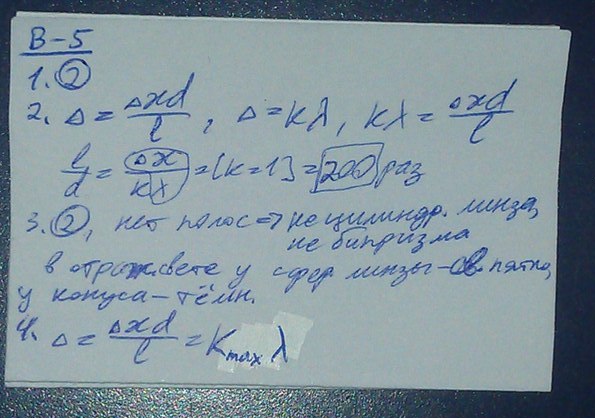 В-5
1. ②
2. Δ = Δxd/l, Δ = kλ, kλ = Δxd/l
l/d = Δx/kλ = [k=1] = 200 раз
3. ②, нет полос => не цилиндр. линза,
не бипризма
в отраж. свете у сфер линзы - св. пятно,
у конуса - тёмн.
4. Δ = Δxd/l = Kmax λ